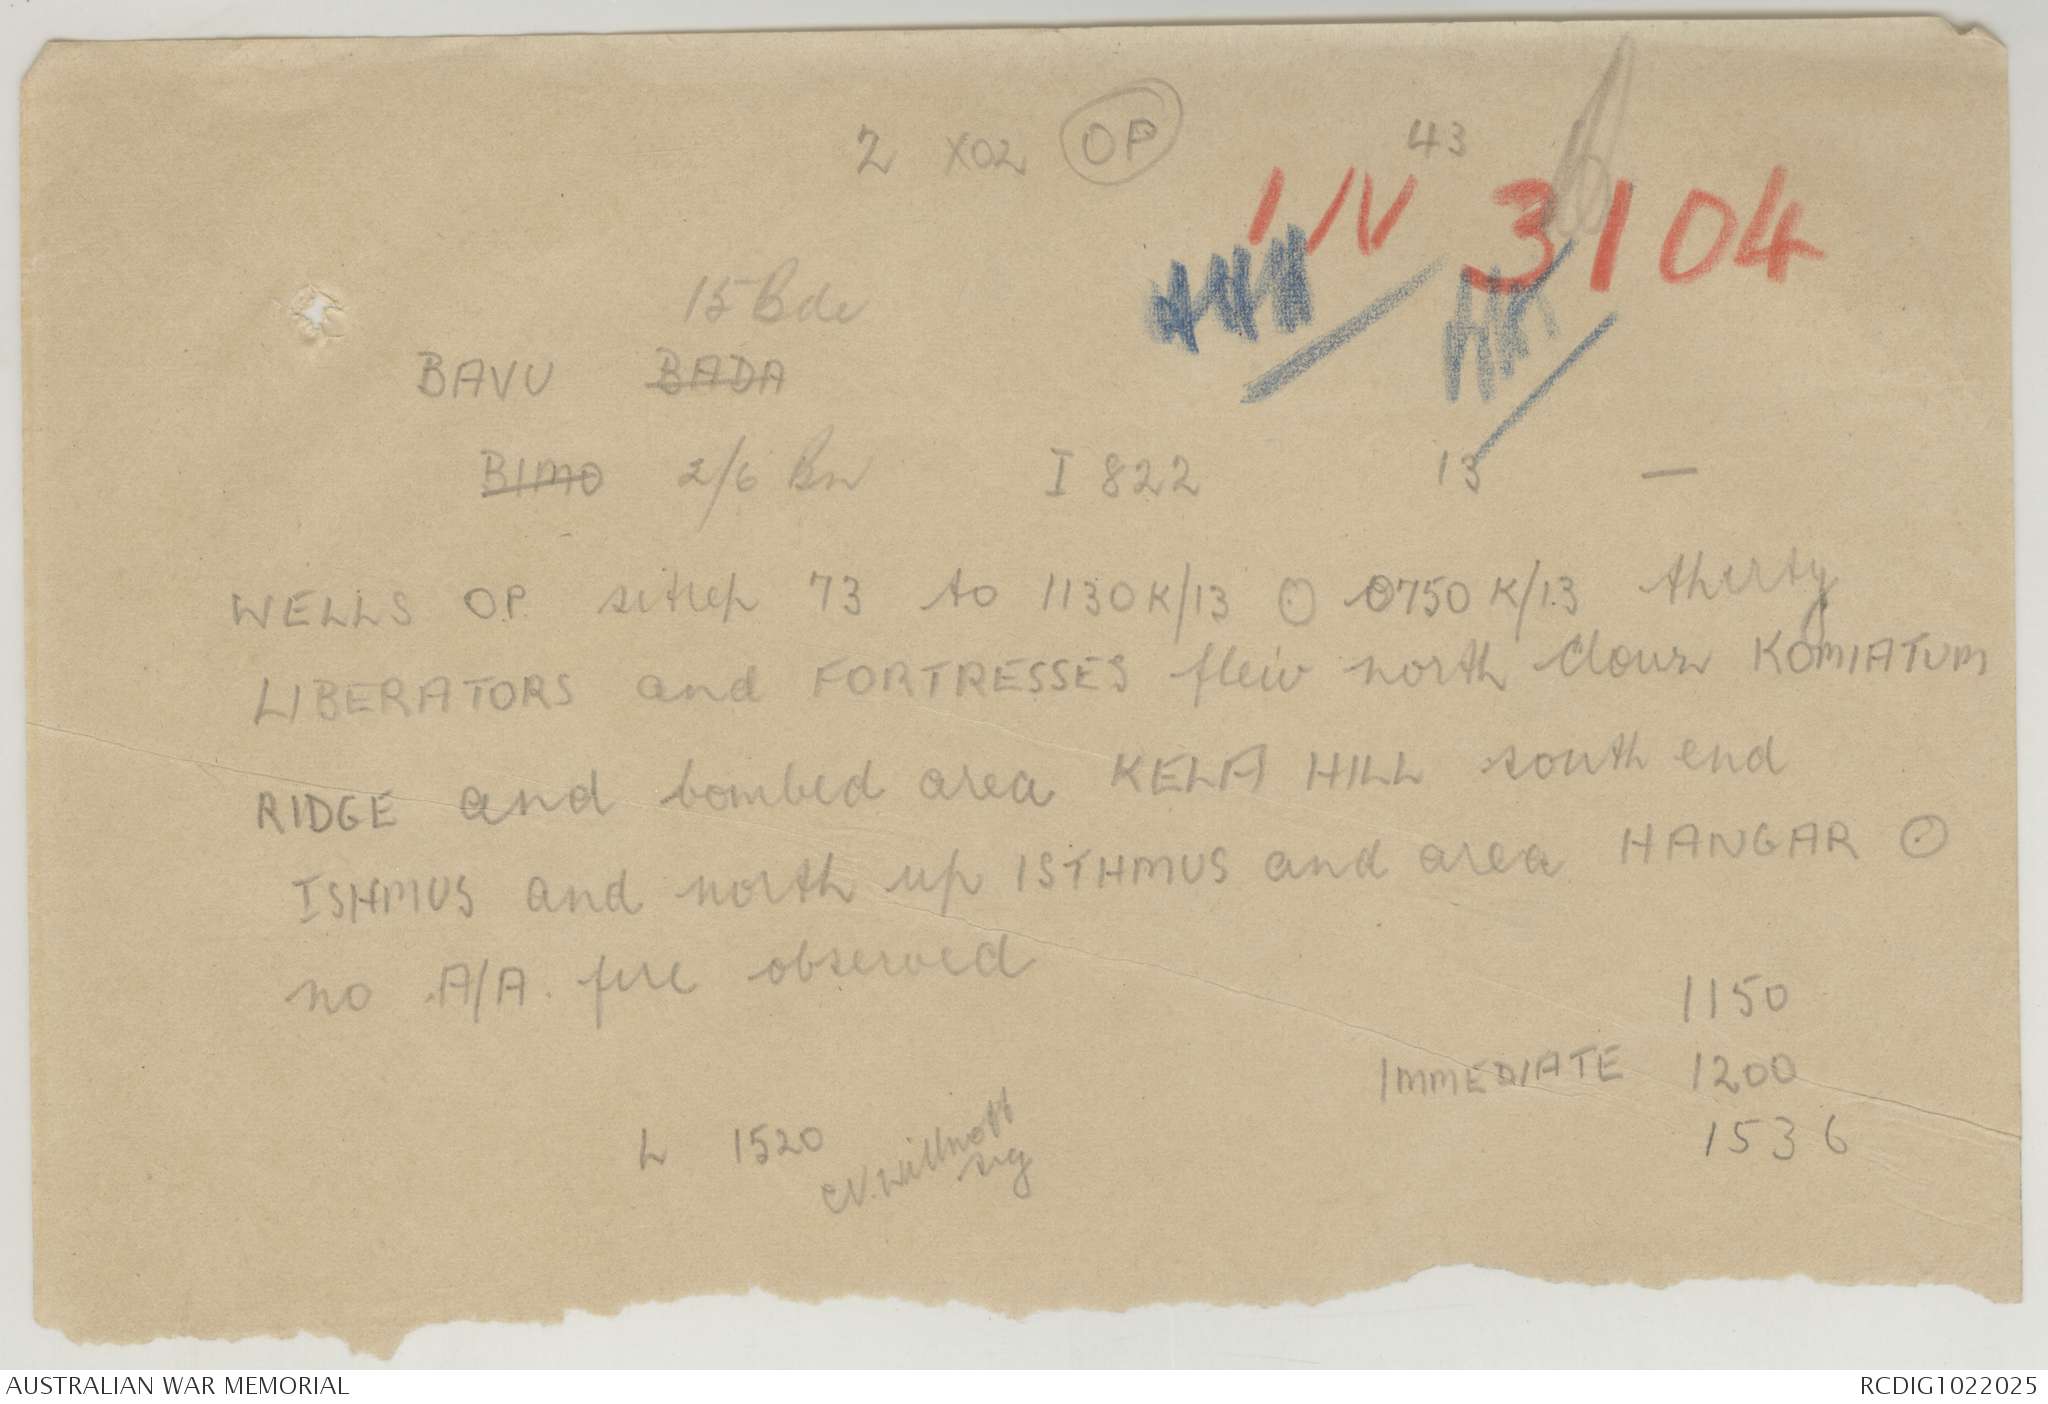 2 X02 OP 43
I/V 3104
15 Bde
BAVU BADA
BIMO 2/6 Bn I 822 13 —
WELLS O.P. sitrep 73 to 1130K/13 ⊙ 0750K/13 thirty
LIBERATORS and FORTRESSES flew north down KOMIATUM
RIDGE and bombed area KELA HILL south end
ISHMUS and north up ISTHMUS and area HANGAR ⊙
no A/A. fire observed
1150
IMMEDIATE 1200
L 1520 1536
Willmott
sig
AUSTRALIAN WAR MEMORIAL RCDIG1022025